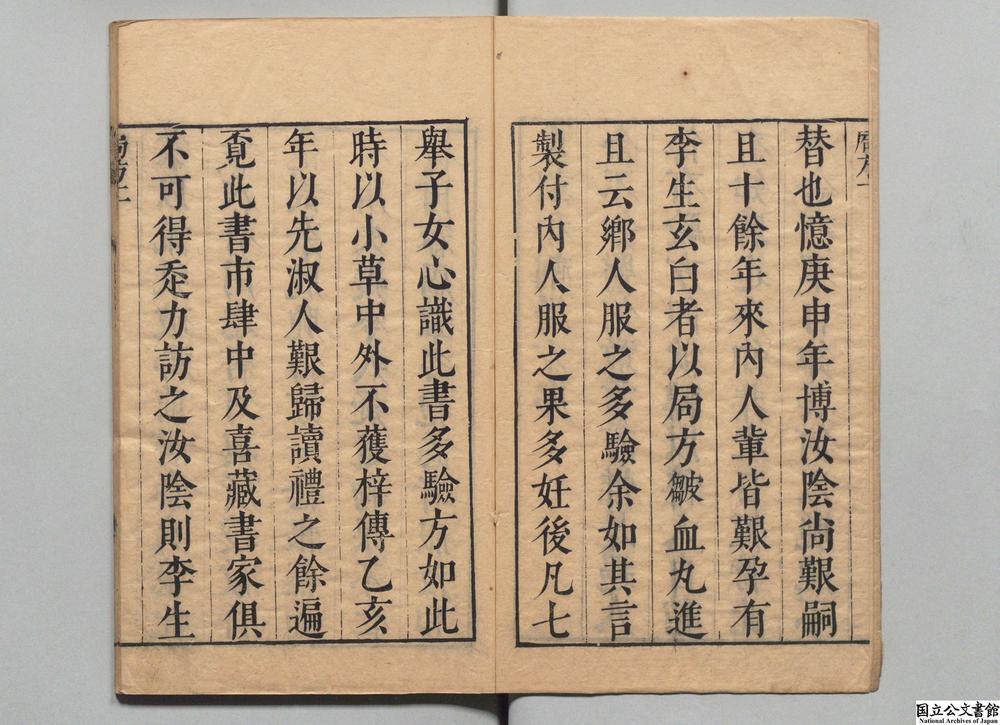 替也憶庚申年博汝陰尙艱嗣
且十餘年來內人輩皆艱孕有
李生玄白者以局方皺血丸進
且云鄉人服之多驗余如其言
製付內人服之果多妊後凡七
舉子女心識此書多驗方如此
時以小草中外不獲梓傳乙亥
年以先淑人艱歸讀禮之餘遍
覔此書市肆中及喜藏書家俱
不可得亟力訪之汝陰則李生
国立公文書館
National Archives of Japan